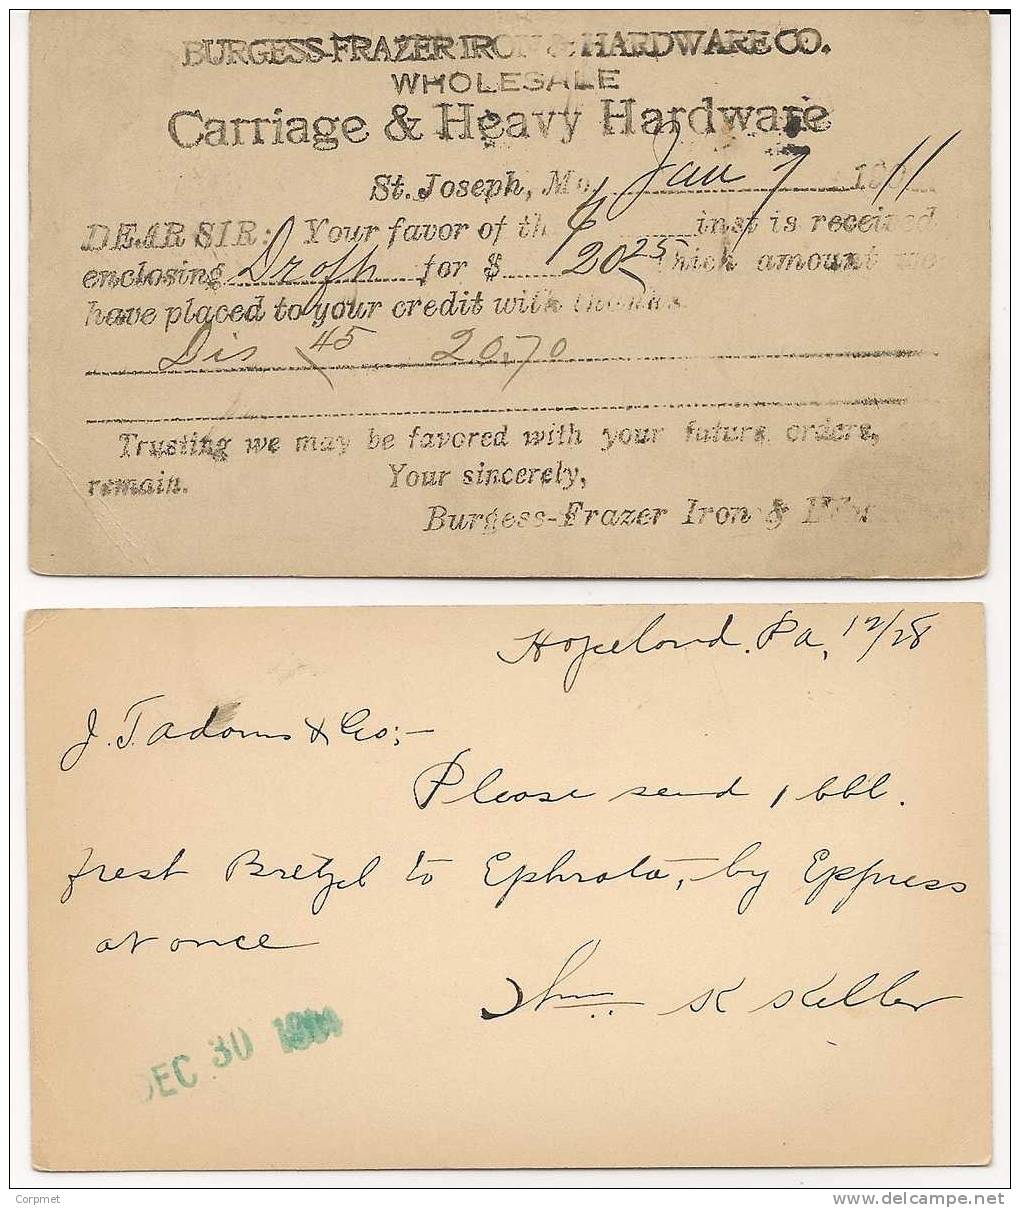 BURGESS-FRAZER IRON & HARDWARE CO.
WHOLESALE
Carriage & Heavy Hardware
St. Joseph, Mo. Jan 7 1911
DEAR SIR: Your favor of th 6 inst is received
enclosing Drafh for $ 20 25 which amount we
have placed to your credit with thanks.
Dis 45 20,70
Trusting we may be favored with your future orders,
remain. Your sincerely,
Burgess-Frazer Iron &
Hopeland, Pa, 12/28
J. T. Adams & Co;-
Please send 1 bbl.
frest Bretzel to Ephrata, by Express
at once
Wm. K Keller
DEC 30
Corpmet
www.delcampe.net